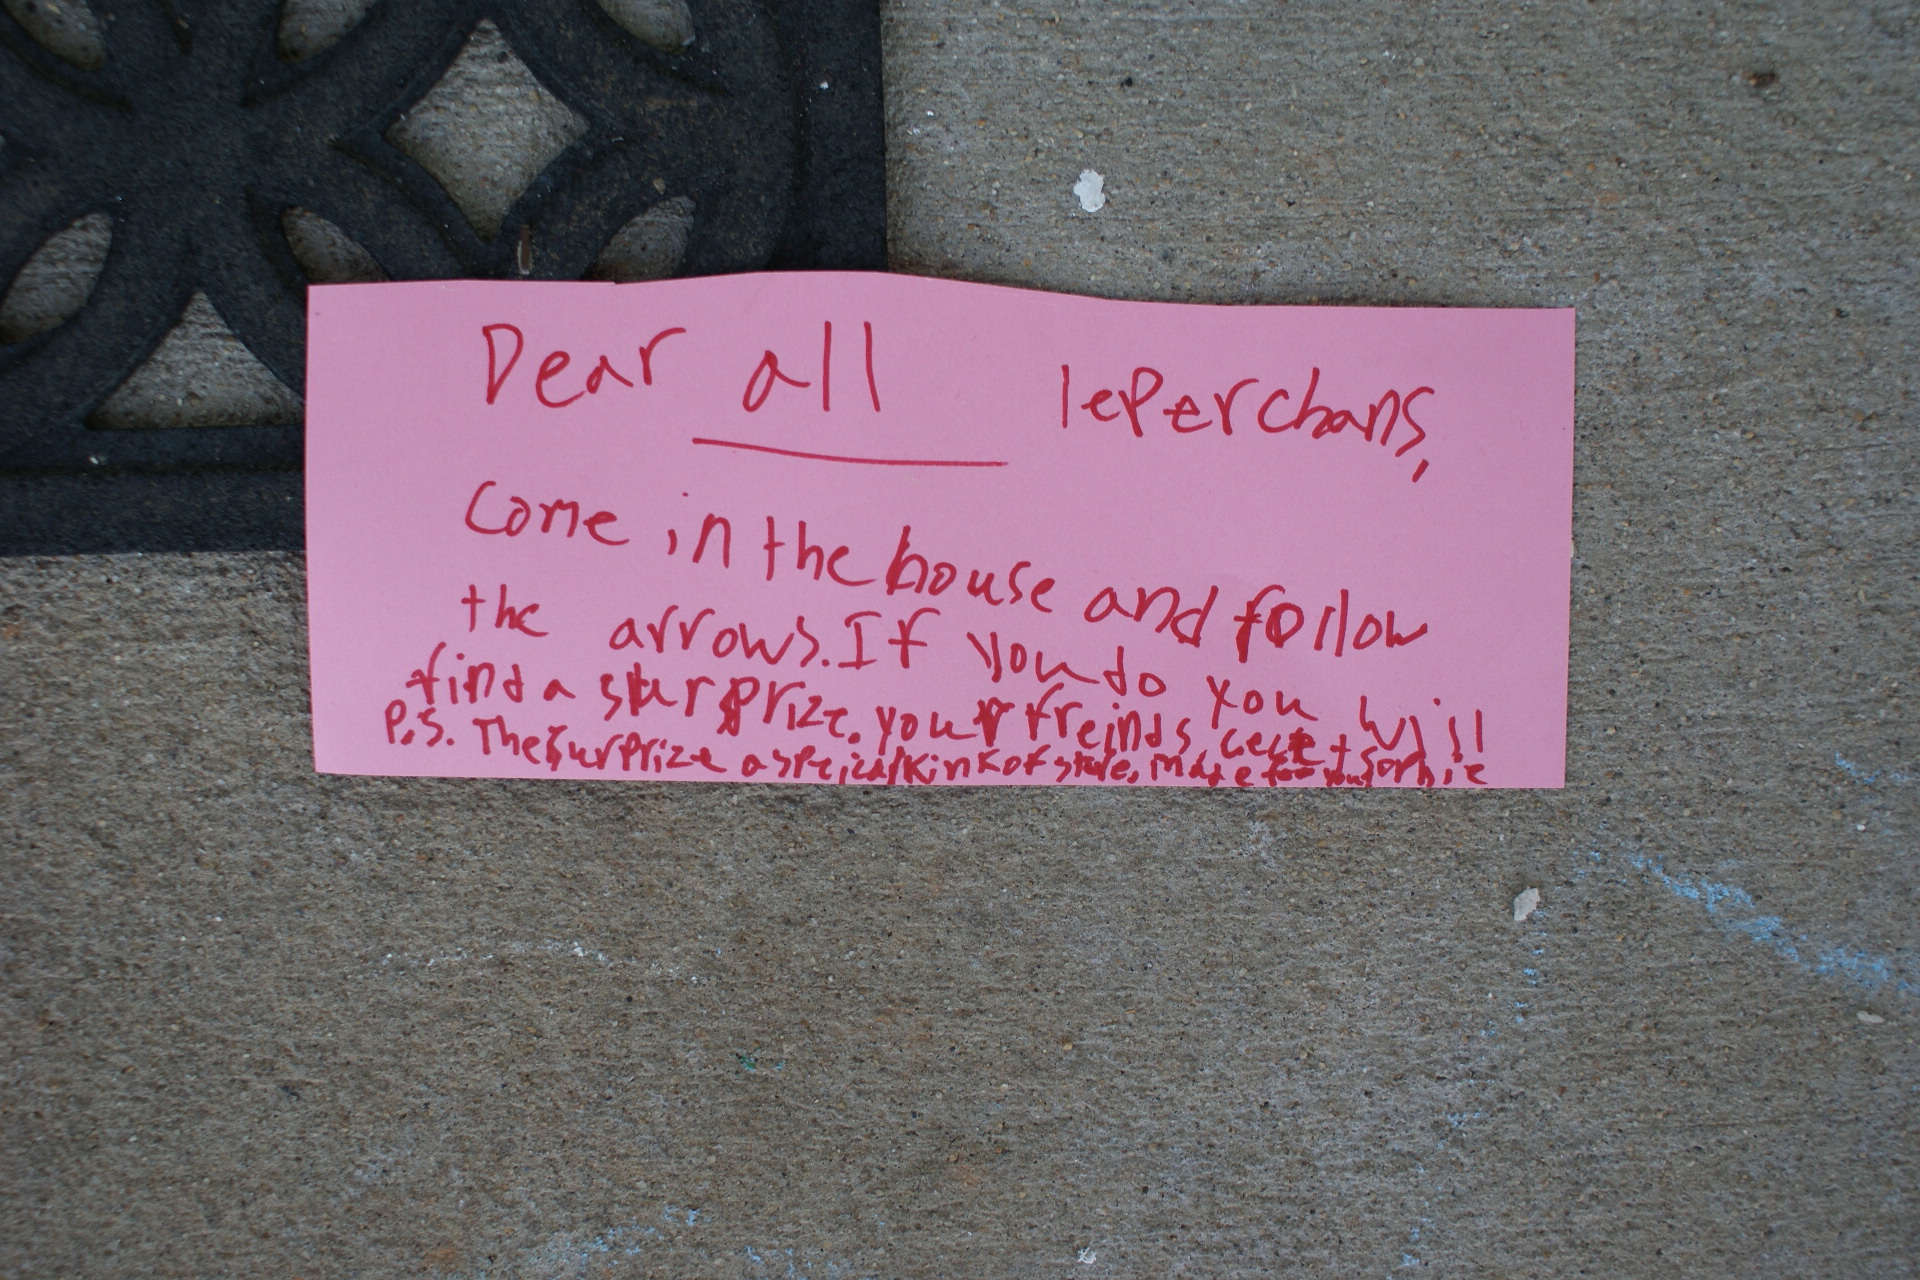 Dear all leperchans,
Come in the house and follow
the arrows. If you do you will
find a surprize. your freinds,
P.S. The surprize a speical kink of made for you